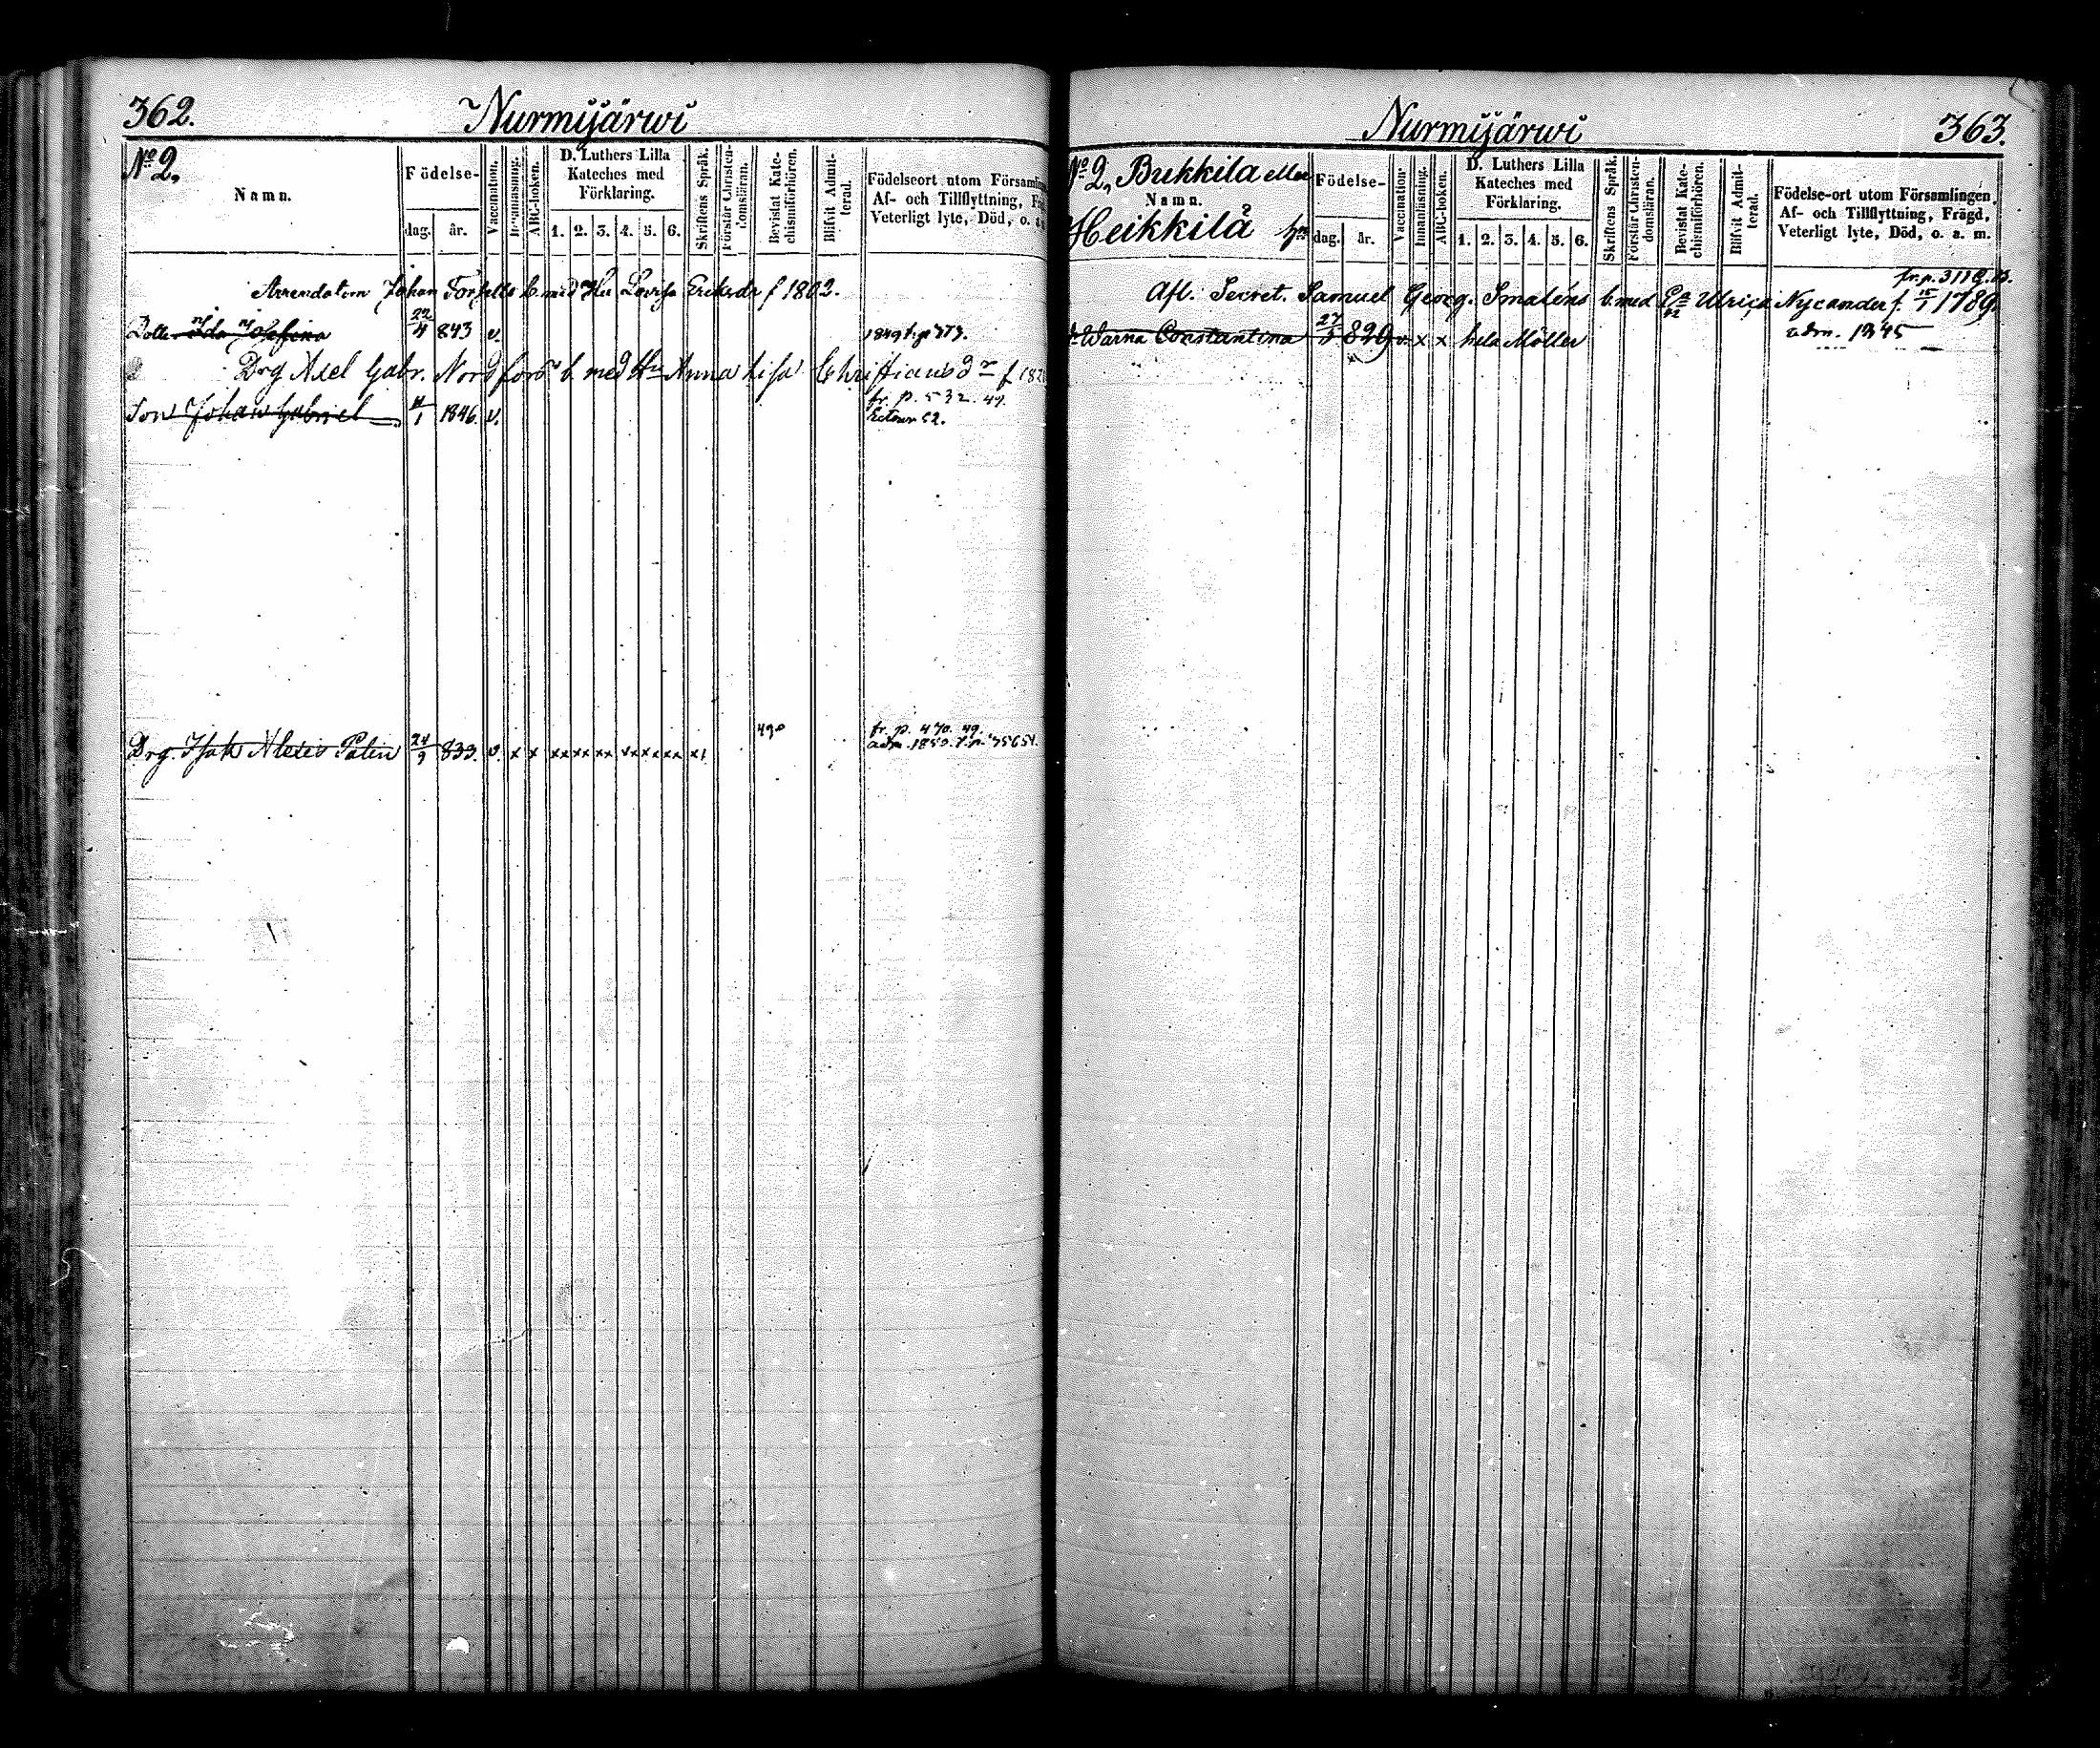 362.
Nurmijärwi
No 2.
Namn.
Födelse-
dag.
år.
Vaccination.
Innanläsning.
ABC-boken.
D. Luthers Lilla
Kateches med
Förklaring.
1. 2. 3. 4. 5. 6.
Skriftens Språk.
Förstår Christen-
domsläran.
Bevistat Kate-
chismiförhören.
Blifvit Admit-
terad.
Födelseort utom Församlin
Af- och Tillflyttning, F
Veterligt lyte, Död, o. a.
Arrendatorn Johan Forsells b. med Hu Lovisa Eriksdr f 1802.
Dotter Ida Josefina 22/4 843 v. 1849 t. p 373.
Drg Axel Gabr. Nordfors b. med Hu Anna Lisa Christiansdr f 182
fr. p. 532. 47.
Son Johan Gabriel 4/1 1846. v.
490 fr. p. 470. 49.
Drg. Isak Alexis Palin 24/9 833. v. x x xx xx xx xx xx xx x adm. 1850.
363.
Nurmijärwi
No 2, Bukkila eller
Heikkilä
Namn.
Födelse-
dag.
år.
Vaccination
Innanläsning.
ABC-boken.
D. Luthers Lilla
Kateches med
Förklaring.
1. 2. 3. 4. 5. 6.
Skriftens Språk.
Förstår Christen-
domsläran.
Bevistat Kate-
chismiförhören.
Blifvit Admit-
terad.
Födelse-ort utom Församlingen,
Af- och Tillflyttning, Frägd,
Veterligt lyte, Död, o. a. m.
fr. p. 311
Afl. Secret. Samuel Georg. Smaléns b. med Ulrica Nycander f. 15/1 1789.
Warna Constantina 27/5 829 v. x x hela Möller adm. 1845